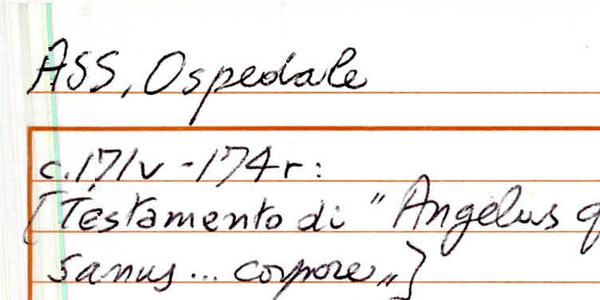 ASS, Ospedale
c.171v-174r:
[Testamento di "Angelus q
sanus... corpore„]